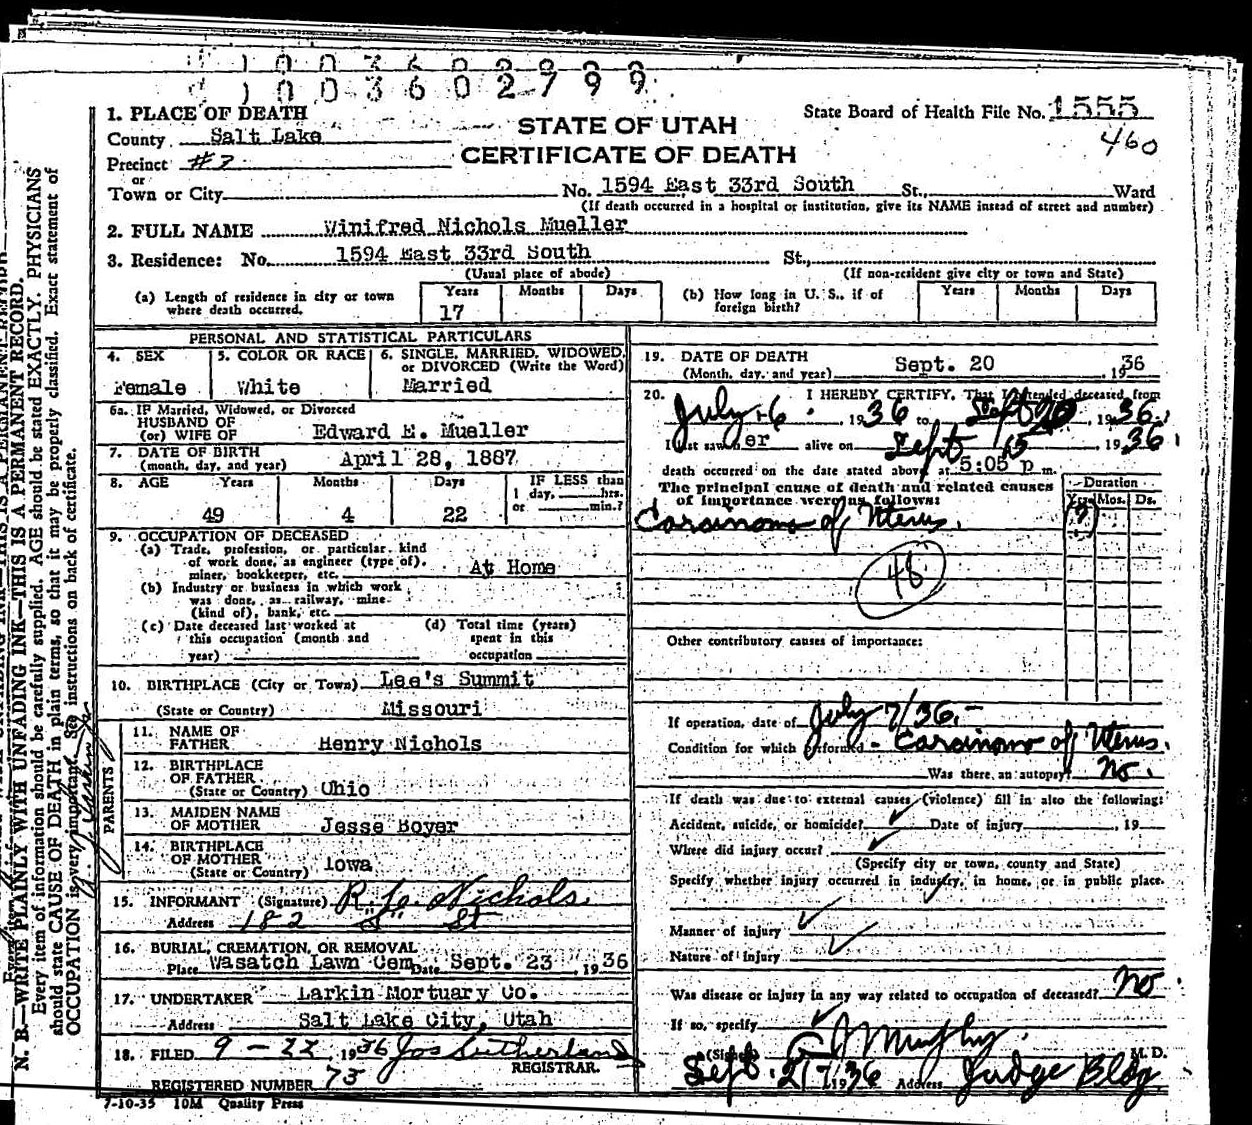 1003602799
1. PLACE OF DEATH
County Salt Lake
Precinct #2
or
Town or City
STATE OF UTAH
CERTIFICATE OF DEATH
State Board of Health File No. 1555
460
No. 1594 East 33rd South St., Ward
(If death occurred in a hospital or institution, give its NAME instead of street and number)
2. FULL NAME Winifred Nichols Mueller
3. Residence: No. 1594 East 33rd South St.,
(Usual place of abode) (If non-resident give city or town and State)
(a) Length of residence in city or town where death occurred. Years Months Days
17
(b) How long in U. S., if of foreign birth? Years Months Days
PERSONAL AND STATISTICAL PARTICULARS
4. SEX 5. COLOR OR RACE 6. SINGLE, MARRIED, WIDOWED, or DIVORCED (Write the Word)
Female White Married
6a. IF Married, Widowed, or Divorced
HUSBAND OF
(or) WIFE OF Edward E. Mueller
7. DATE OF BIRTH
(month, day, and year) April 28, 1887
8. AGE Years Months Days IF LESS than
1 day, hrs.
or min.?
49 4 22
9. OCCUPATION OF DECEASED
(a) Trade, profession, or particular kind
of work done, as engineer (type of),
miner, bookkeeper, etc. At Home
(b) Industry or business in which work
was done, as railway, mine
(kind of), bank, etc.
(c) Date deceased last worked at
this occupation (month and
year)
(d) Total time (years)
spent in this
occupation
10. BIRTHPLACE (City or Town) Lee's Summit
(State or Country) Missouri
PARENTS
11. NAME OF
FATHER Henry Nichols
12. BIRTHPLACE
OF FATHER
(State or Country) Ohio
13. MAIDEN NAME
OF MOTHER Jesse Boyer
14. BIRTHPLACE
OF MOTHER
(State or Country) Iowa
15. INFORMANT (Signature) Nichols
Address 182 "S" St
16. BURIAL, CREMATION, OR REMOVAL
Place Wasatch Lawn Cem Date Sept. 23, 1936
17. UNDERTAKER Larkin Mortuary Co.
Address Salt Lake City, Utah
18. FILED 9-22 1936 Jos Sutherland
REGISTRAR.
REGISTERED NUMBER 73
7-10-35 10M Quality Press
19. DATE OF DEATH
(Month, day, and year) Sept. 20 1936
20. I HEREBY CERTIFY, That I attended deceased from
July 6, 1936 to Sept 20, 1936.
I last saw her alive on Sept 15 1936.
death occurred on the date stated above at 5:05 p m.
The principal cause of death and related causes
of importance were as follows:
Duration
Yrs. Mos. Ds.
Carcinoma of Uterus. (?)
48
Other contributory causes of importance:
If operation, date of July 7/36.-
Condition for which performed - Carcinoma of Uterus.
Was there an autopsy? No.
If death was due to external causes (violence) fill in also the following:
Accident, suicide, or homicide? Date of injury , 19
Where did injury occur?
(Specify city or town, county and State)
Specify whether injury occurred in industry, in home, or in public place.
Manner of injury
Nature of injury
Was disease or injury in any way related to occupation of deceased? No
If so, specify
(Signed) Murphy M. D.
Sept. 21, 1936 Address Judge Bldg.
N. B.—WRITE PLAINLY WITH UNFADING INK—THIS IS A PERMANENT RECORD.
Every item of information should be carefully supplied. AGE should be stated EXACTLY. PHYSICIANS
should state CAUSE OF DEATH in plain terms, so that it may be properly classified. Exact statement of
OCCUPATION is very important. See instructions on back of certificate.